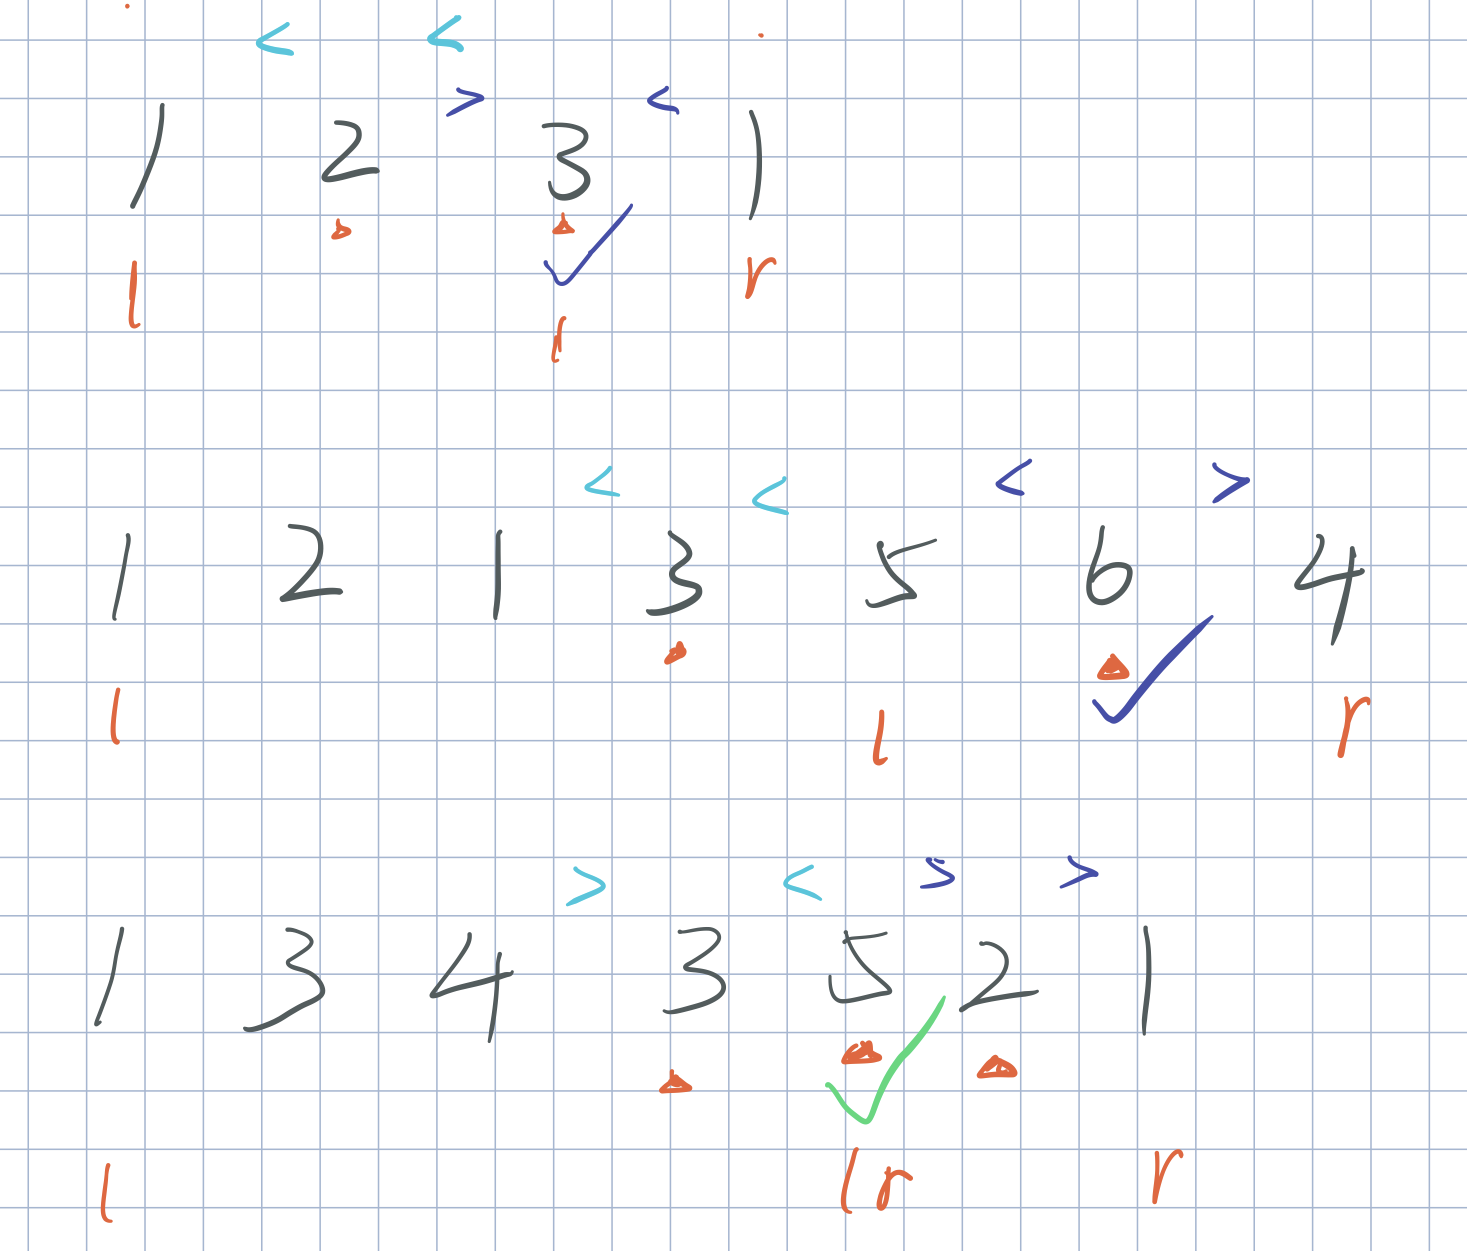 < <
> <
1 2 3 1
l r
r
< < < >
1 2 1 3 5 6 4
l l r
> < > >
1 3 4 3 5 2 1
l l r r